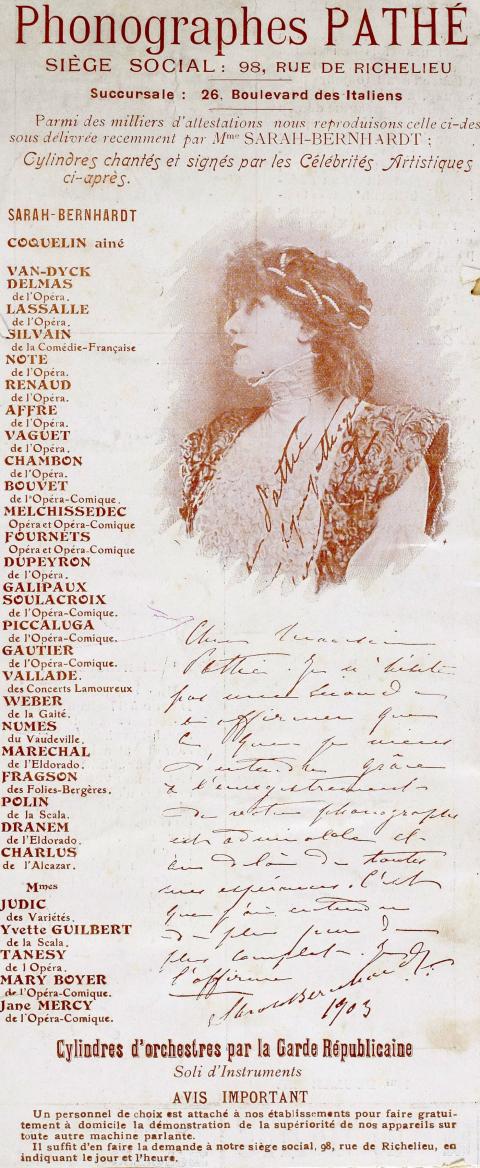 Phonographes PATHÉ
SIÈGE SOCIAL : 98, RUE DE RICHELIEU
Succursale : 26, Boulevard des Italiens
Parmi des milliers d'attestations nous reproduisons celle ci-des
sous délivrée recemment par Mme SARAH-BERNHARDT ;
Cylindres chantés et signés par les Célébrités Artistiques
ci-après.
SARAH-BERNHARDT
COQUELIN ainé
VAN-DYCK
DELMAS
de l'Opéra.
LASSALLE
de l'Opéra.
SILVAIN
de la Comédie-Française
NOTE
de l'Opéra.
RENAUD
de l'Opéra.
AFFRE
de l'Opéra.
VAGUET
de l'Opéra.
CHAMBON
de l'Opéra.
BOUVET
de l'Opéra-Comique.
MELCHISSEDEC
Opéra et Opéra-Comique
FOURNETS
Opéra et Opéra-Comique
DUPEYRON
de l'Opéra.
GALIPAUX
SOULACROIX
de l'Opéra-Comique.
PICCALUGA
de l'Opéra-Comique.
GAUTIER
de l'Opéra-Comique.
VALLADE.
des Concerts Lamoureux
WEBER
de la Gaité.
NUMES
du Vaudeville.
MARECHAL
de l'Eldorado.
FRAGSON
des Folies-Bergères.
POLIN
de la Scala.
DRANEM
de l'Eldorado.
CHARLUS
de l'Alcazar.
Mmes
JUDIC
des Variétés.
Yvette GUILBERT
de la Scala.
TANESY
de l Opéra.
MARY BOYER
de l'Opéra-Comique.
Jane MERCY
de l'Opéra-Comique.
Pathé
sympathie
Cher Monsieur
Pathé. Je n'hésite
pas une seconde
à affirmer que
ce que je viens
d'entendre grâce
à l'enregistrement
de votre phonographe
est admirable et
au delà de toutes
mes espérances. C'est
que j'ai entendu
de plus pur de
plus complet. Je
l'affirme
Sarah Bernhardt.
1903
Cylindres d'orchestres par la Garde Républicaine
Soli d'Instruments
AVIS IMPORTANT
Un personnel de choix est attaché à nos établissements pour faire gratui-
tement à domicile la démonstration de la supériorité de nos appareils sur
toute autre machine parlante.
Il suffit d'en faire la demande à notre siège social, 98, rue de Richelieu, en
indiquant le jour et l'heure.